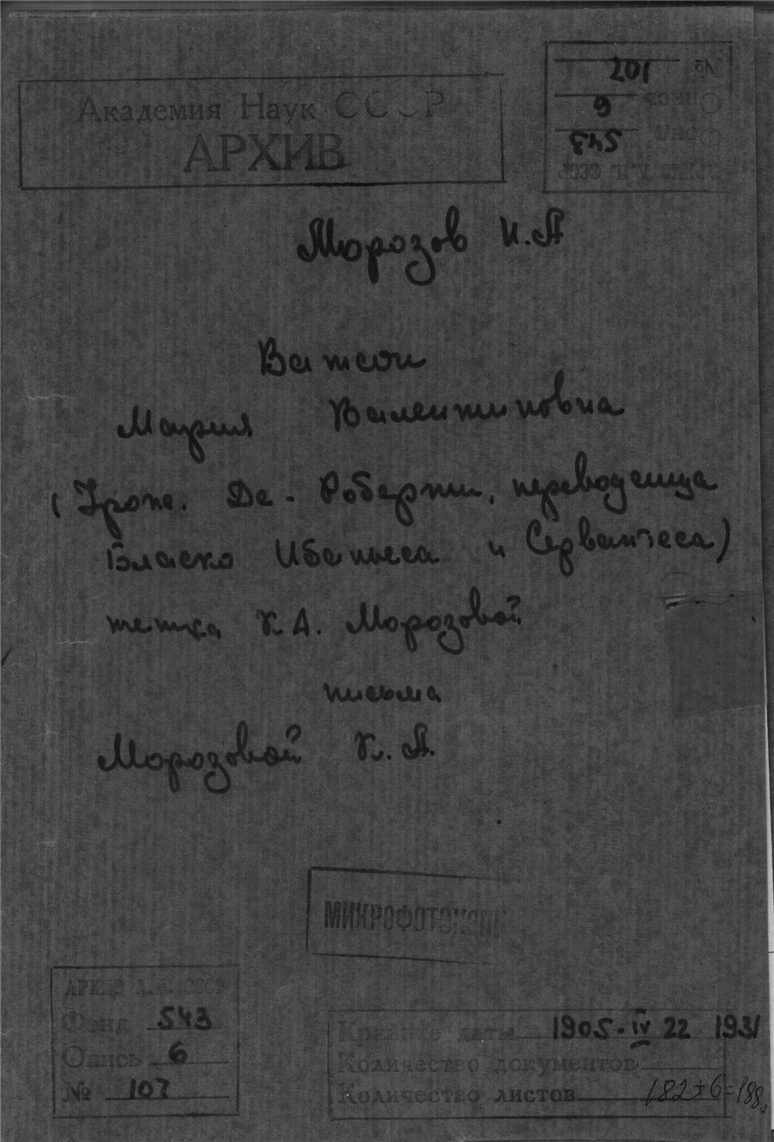 Академия Наук СССР
АРХИВ
№ 107
Опись 6
Фонд 543
Морозов Н.А
Ватсон
Мария Валентиновна
(Урож. Де-Роберти, переводчица
Бласко Ибаньеса и Сервантеса)
тетка К.А. Морозовой
письма
Морозовой К.А.
МИКРОФОТОКОПИ
Фонд 543
Опись 6
№ 107
Крайние даты 1905-IV 22 1931
Количество документов
Количество листов 182+6=188